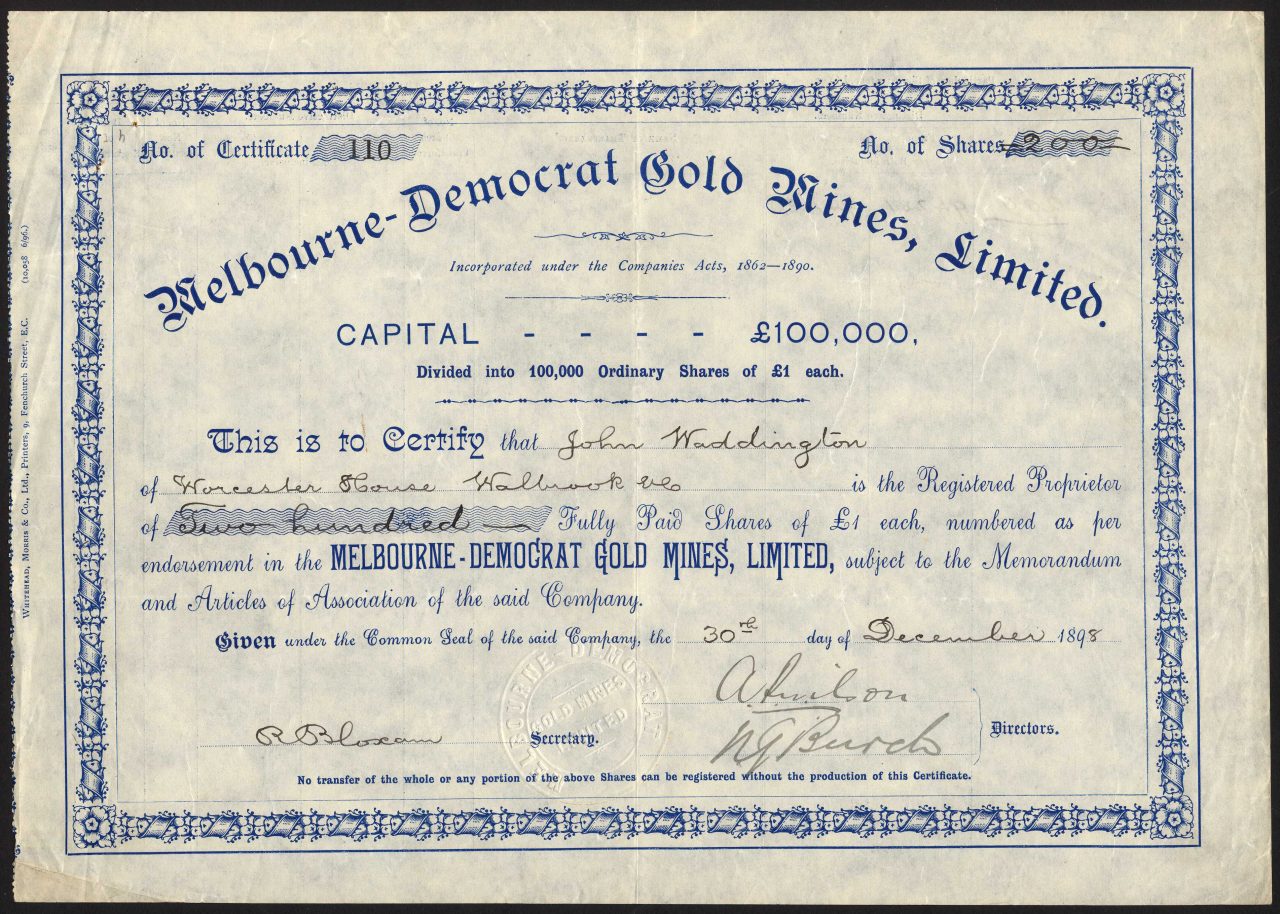 No. of Certificate 110
No. of Shares 200
Melbourne-Democrat Gold Mines, Limited.
Incorporated under the Companies Acts, 1862—1890.
CAPITAL - - - - £100,000,
Divided into 100,000 Ordinary Shares of £1 each.
This is to Certify that John Waddington
of Worcester House Walbrook EC is the Registered Proprietor
of Two hundred — Fully Paid Shares of £1 each, numbered as per
endorsement in the MELBOURNE-DEMOCRAT GOLD MINES, LIMITED, subject to the Memorandum
and Articles of Association of the said Company.
Given under the Common Seal of the said Company, the 30th day of December 1898
MELBOURNE-DEMOCRAT
GOLD MINES
LIMITED
R Bloxam Secretary.
Wilson
Burch
Directors.
No transfer of the whole or any portion of the above Shares can be registered without the production of this Certificate.
WHITEHEAD, MORRIS & CO., LTD., Printers, 9, Fenchurch Street, E.C. (10,058 6/96.)